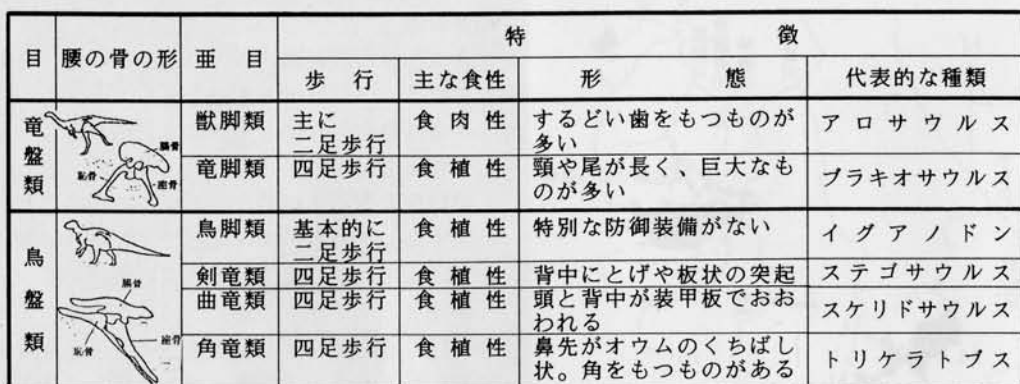 目 腰の骨の形 亜目 特徴
歩行 主な食性 形態 代表的な種類
竜盤類
腸骨
恥骨
座骨
獣脚類 主に二足歩行 食肉性 するどい歯をもつものが多い アロサウルス
竜脚類 四足歩行 食植性 頸や尾が長く、巨大なものが多い ブラキオサウルス
鳥盤類
腸骨
恥骨
座骨
鳥脚類 基本的に二足歩行 食植性 特別な防御装備がない イグアノドン
剣竜類 四足歩行 食植性 背中にとげや板状の突起 ステゴサウルス
曲竜類 四足歩行 食植性 頭と背中が装甲板でおおわれる スケリドサウルス
角竜類 四足歩行 食植性 鼻先がオウムのくちばし状。角をもつものがある トリケラトプス